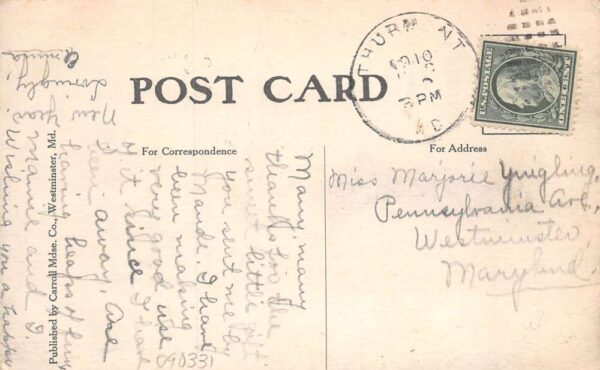 POST CARD
For Correspondence
For Address
THURMONT
10
PM
U.S. POSTAGE
ONE CENT
Miss Marjorie Yingling,
Pennsylvania Ave,
Westminster,
Maryland.
Many many
thanks for the
sweet little gift
you sent me by
Maude. I have
been making
very good use
of it since I have
been away. Are
having heaps of fun.
Mamie and I
Wishing you a happy
New Year.
Lovingly,
090331
Published by Carroll Mdse. Co., Westminster, Md.